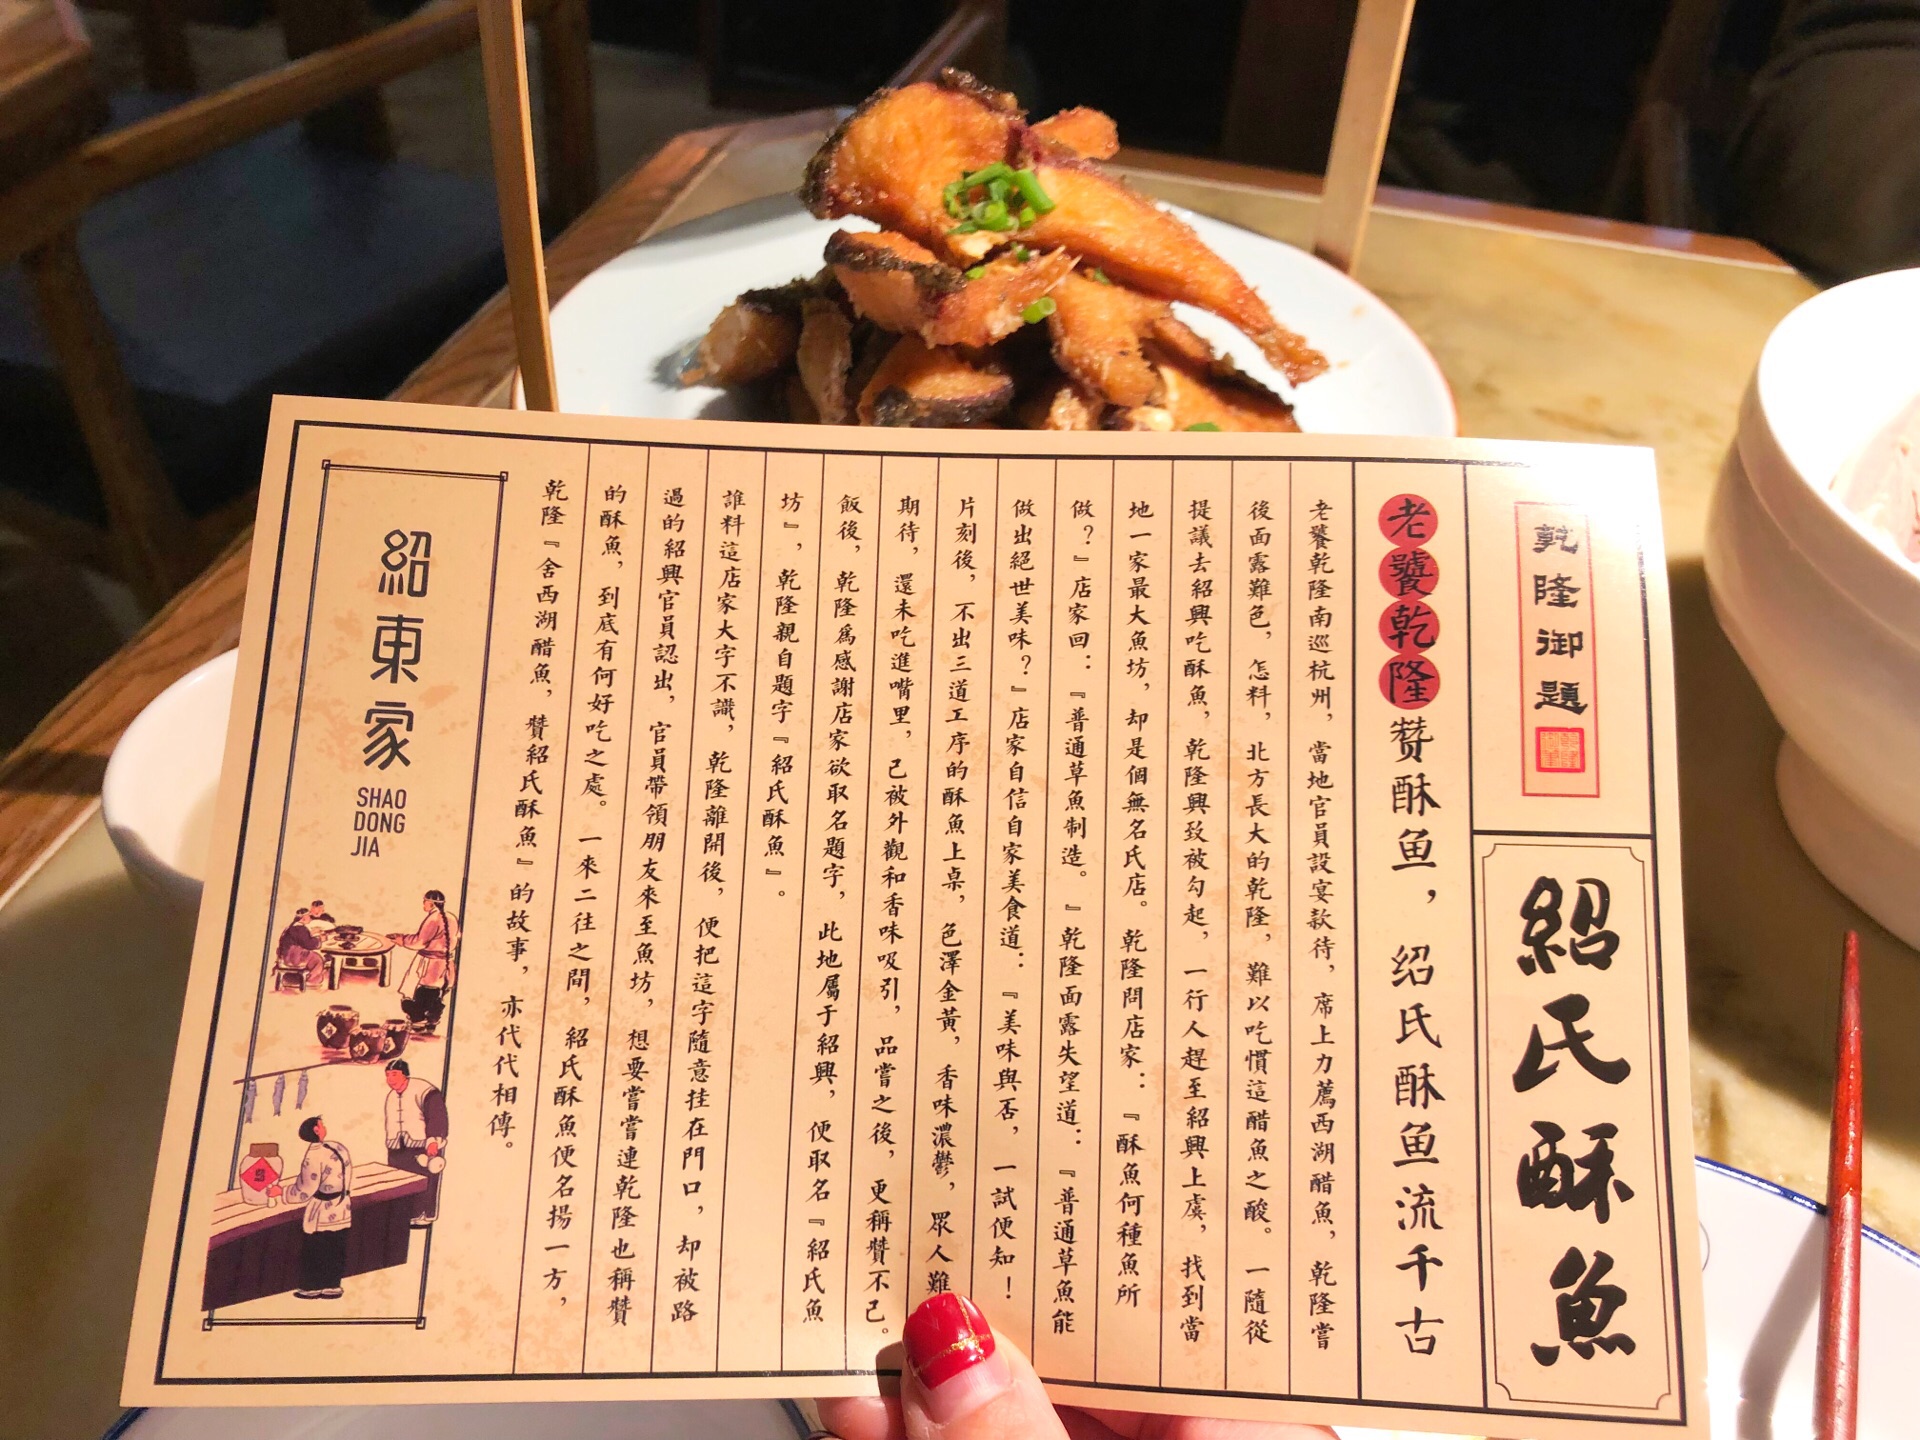 乾隆御題
紹氏酥魚
老饕乾隆赞酥鱼，绍氏酥鱼流千古
老饕乾隆南巡杭州，當地官員設宴款待，席上力薦西湖醋魚，乾隆嘗
後面露難色，怎料，北方長大的乾隆，難以吃慣這醋魚之酸。一隨從
提議去紹興吃酥魚，乾隆興致被勾起，一行人趕至紹興上虞，找到當
地一家最大魚坊，却是個無名氏店。乾隆問店家：『酥魚何種魚所
做？』店家回：『普通草魚制造。』乾隆面露失望道：『普通草魚能
做出絕世美味？』店家自信自家美食道：『美味與否，一試便知！
片刻後，不出三道工序的酥魚上桌，色澤金黃，香味濃鬱，眾人難
期待，還未吃進嘴里，已被外觀和香味吸引，品嘗之後，更稱贊不已。
飯後，乾隆爲感謝店家欲取名題字，此地屬于紹興，便取名『紹氏魚
坊』，乾隆親自題字『紹氏酥魚』。
誰料這店家大字不識，乾隆離開後，便把這字隨意挂在門口，却被路
過的紹興官員認出，官員帶領朋友來至魚坊，想要嘗嘗連乾隆也稱贊
的酥魚，到底有何好吃之處。一來二往之間，紹氏酥魚便名揚一方，
乾隆『舍西湖醋魚，贊紹氏酥魚』的故事，亦代代相傳。
紹東家
SHAO
DONG
JIA